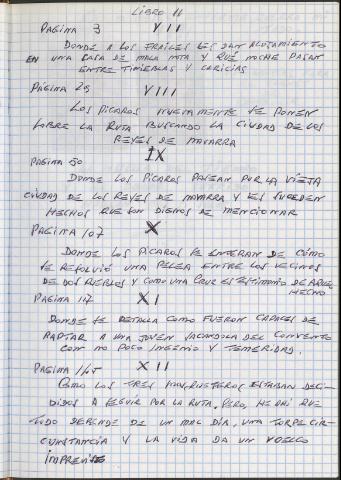 LIBRO II
PAGINA 3 VII
DONDE A LOS FRAILES LES DAN ALOJAMIENTO
EN UNA CASA DE MALA NOTA Y QUÉ NOCHE PASAN
ENTRE TINIEBLAS Y CARICIAS
PÁGINA 29 VIII
LOS PÍCAROS NUEVAMENTE SE PONEN
SOBRE LA RUTA BUSCANDO LA CIUDAD DE LOS
REYES DE NAVARRA
IX
PAGINA 50
DONDE LOS PÍCAROS PASEAN POR LA VIEJA
CIUDAD DE LOS REYES DE NAVARRA Y LES SUCEDEN
HECHOS QUE SON DIGNOS DE MENCIONAR
PAGINA 107 X
DONDE LOS PÍCAROS SE ENTERAN DE CÓMO
SE RESOLVIÓ UNA PELEA ENTRE LOS VECINOS
DE DOS PUEBLOS Y COMO UNA CRUZ ES TESTIMONIO DE AQUEL
HECHO
PAGINA 117 XI
DONDE SE DETALLA COMO FUERON CAPACES DE
RAPTAR A UNA JOVEN SACANDOLA DEL CONVENTO
CON NO POCO INGENIO Y TEMERIDAD.
PAGINA 145 XII
COMO LOS TRES MOSQUETEROS ESTABAN DECI-
DIDOS A SEGUIR POR LA RUTA, PERO, HE AHÍ QUE
TODO DEPENDE DE UN MAL DÍA, UNA TORPE CIR-
CUNSTANCIA Y LA VIDA DA UN VUELCO
IMPREVISTO